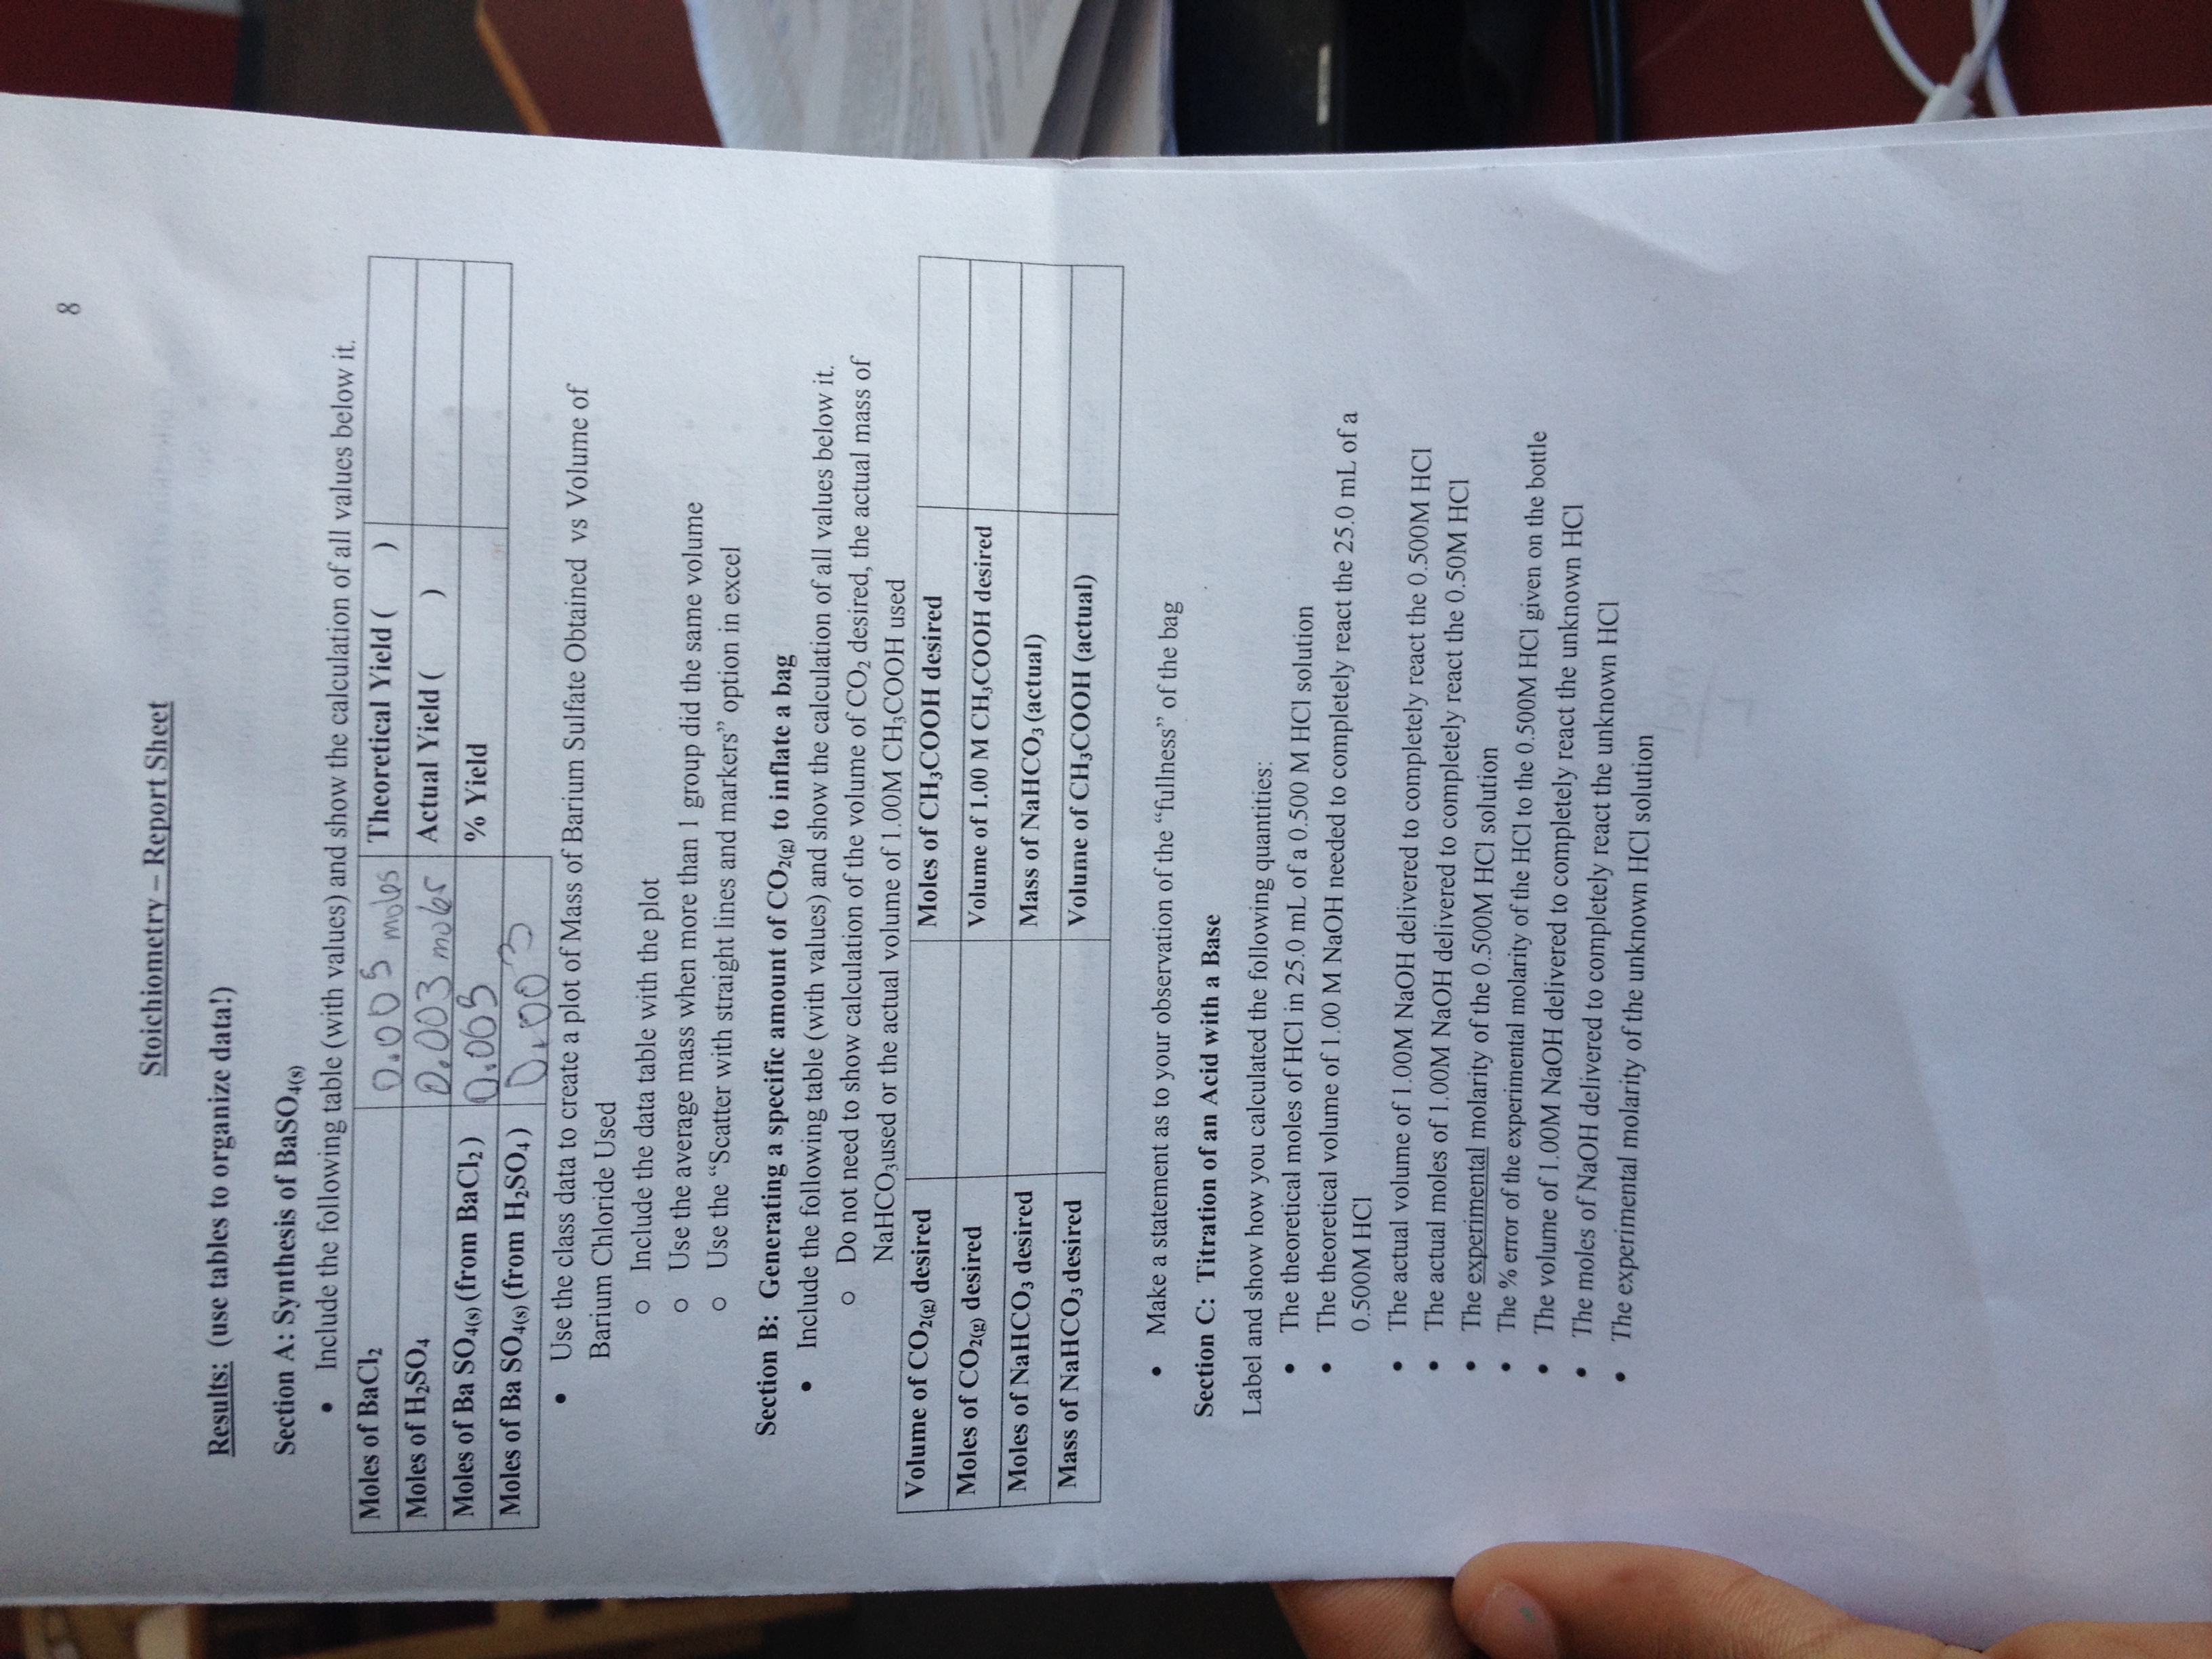 8
Stoichiometry – Report Sheet
Results: (use tables to organize data!)
Section A: Synthesis of BaSO4(s)
• Include the following table (with values) and show the calculation of all values below it.
Moles of BaCl2 0.005 moles Theoretical Yield ( )
Moles of H2SO4 0.003 moles Actual Yield ( )
Moles of Ba SO4(s) (from BaCl2 ) 0.005 % Yield
Moles of Ba SO4(s) (from H2SO4 ) 0.003
• Use the class data to create a plot of Mass of Barium Sulfate Obtained vs Volume of
Barium Chloride Used
o Include the data table with the plot
o Use the average mass when more than 1 group did the same volume
o Use the “Scatter with straight lines and markers” option in excel
Section B: Generating a specific amount of CO2(g) to inflate a bag
• Include the following table (with values) and show the calculation of all values below it.
o Do not need to show calculation of the volume of CO2 desired, the actual mass of
NaHCO3used or the actual volume of 1.00M CH3COOH used
Volume of CO2(g) desired Moles of CH3COOH desired
Moles of CO2(g) desired Volume of 1.00 M CH3COOH desired
Moles of NaHCO3 desired Mass of NaHCO3 (actual)
Mass of NaHCO3 desired Volume of CH3COOH (actual)
• Make a statement as to your observation of the “fullness” of the bag
Section C: Titration of an Acid with a Base
Label and show how you calculated the following quantities:
• The theoretical moles of HCl in 25.0 mL of a 0.500 M HCl solution
• The theoretical volume of 1.00 M NaOH needed to completely react the 25.0 mL of a
0.500M HCl
• The actual volume of 1.00M NaOH delivered to completely react the 0.500M HCl
• The actual moles of 1.00M NaOH delivered to completely react the 0.50M HCl
• The experimental molarity of the 0.500M HCl solution
• The % error of the experimental molarity of the HCl to the 0.500M HCl given on the bottle
• The volume of 1.00M NaOH delivered to completely react the unknown HCl
• The moles of NaOH delivered to completely react the unknown HCl
• The experimental molarity of the unknown HCl solution